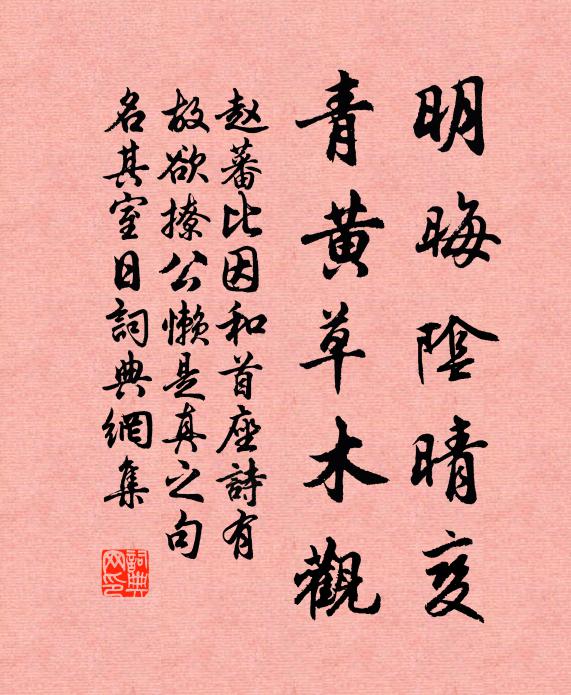 明晦陰晴变
青黄草木觀
赵蕃比因和首座詩有
故欲撩公懒是真之句
名其室日詞典網集
詞典网印